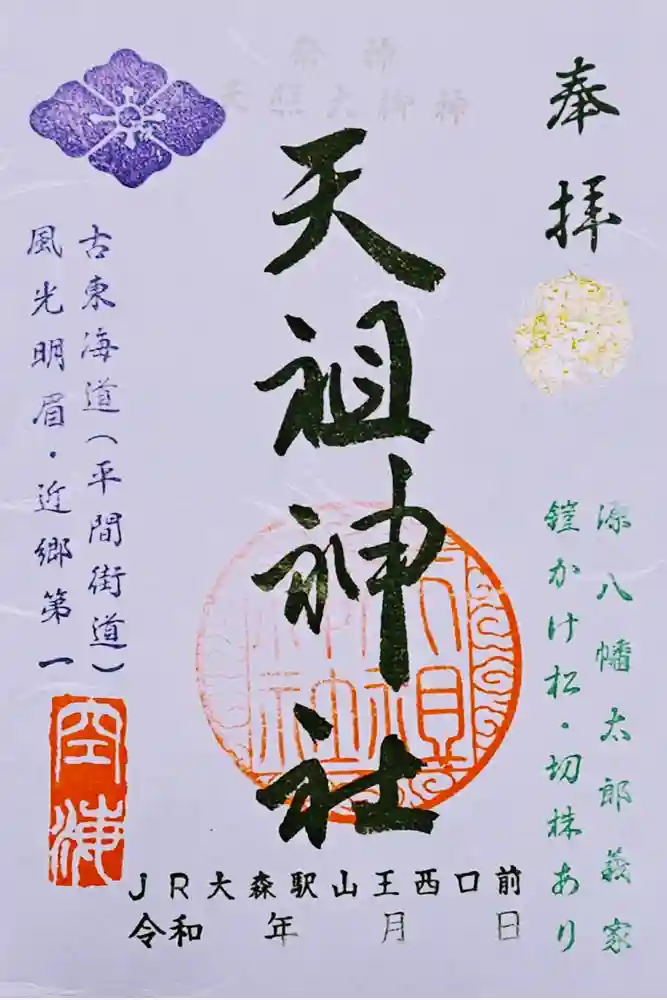 奉拝
祭神
天照大御神
天祖神社
源八幡太郎義家
鎧かけ松・切株あり
古東海道(平間街道)
風光明眉・近郷第一
空海
JR大森駅山王西口前
令和 年 月 日